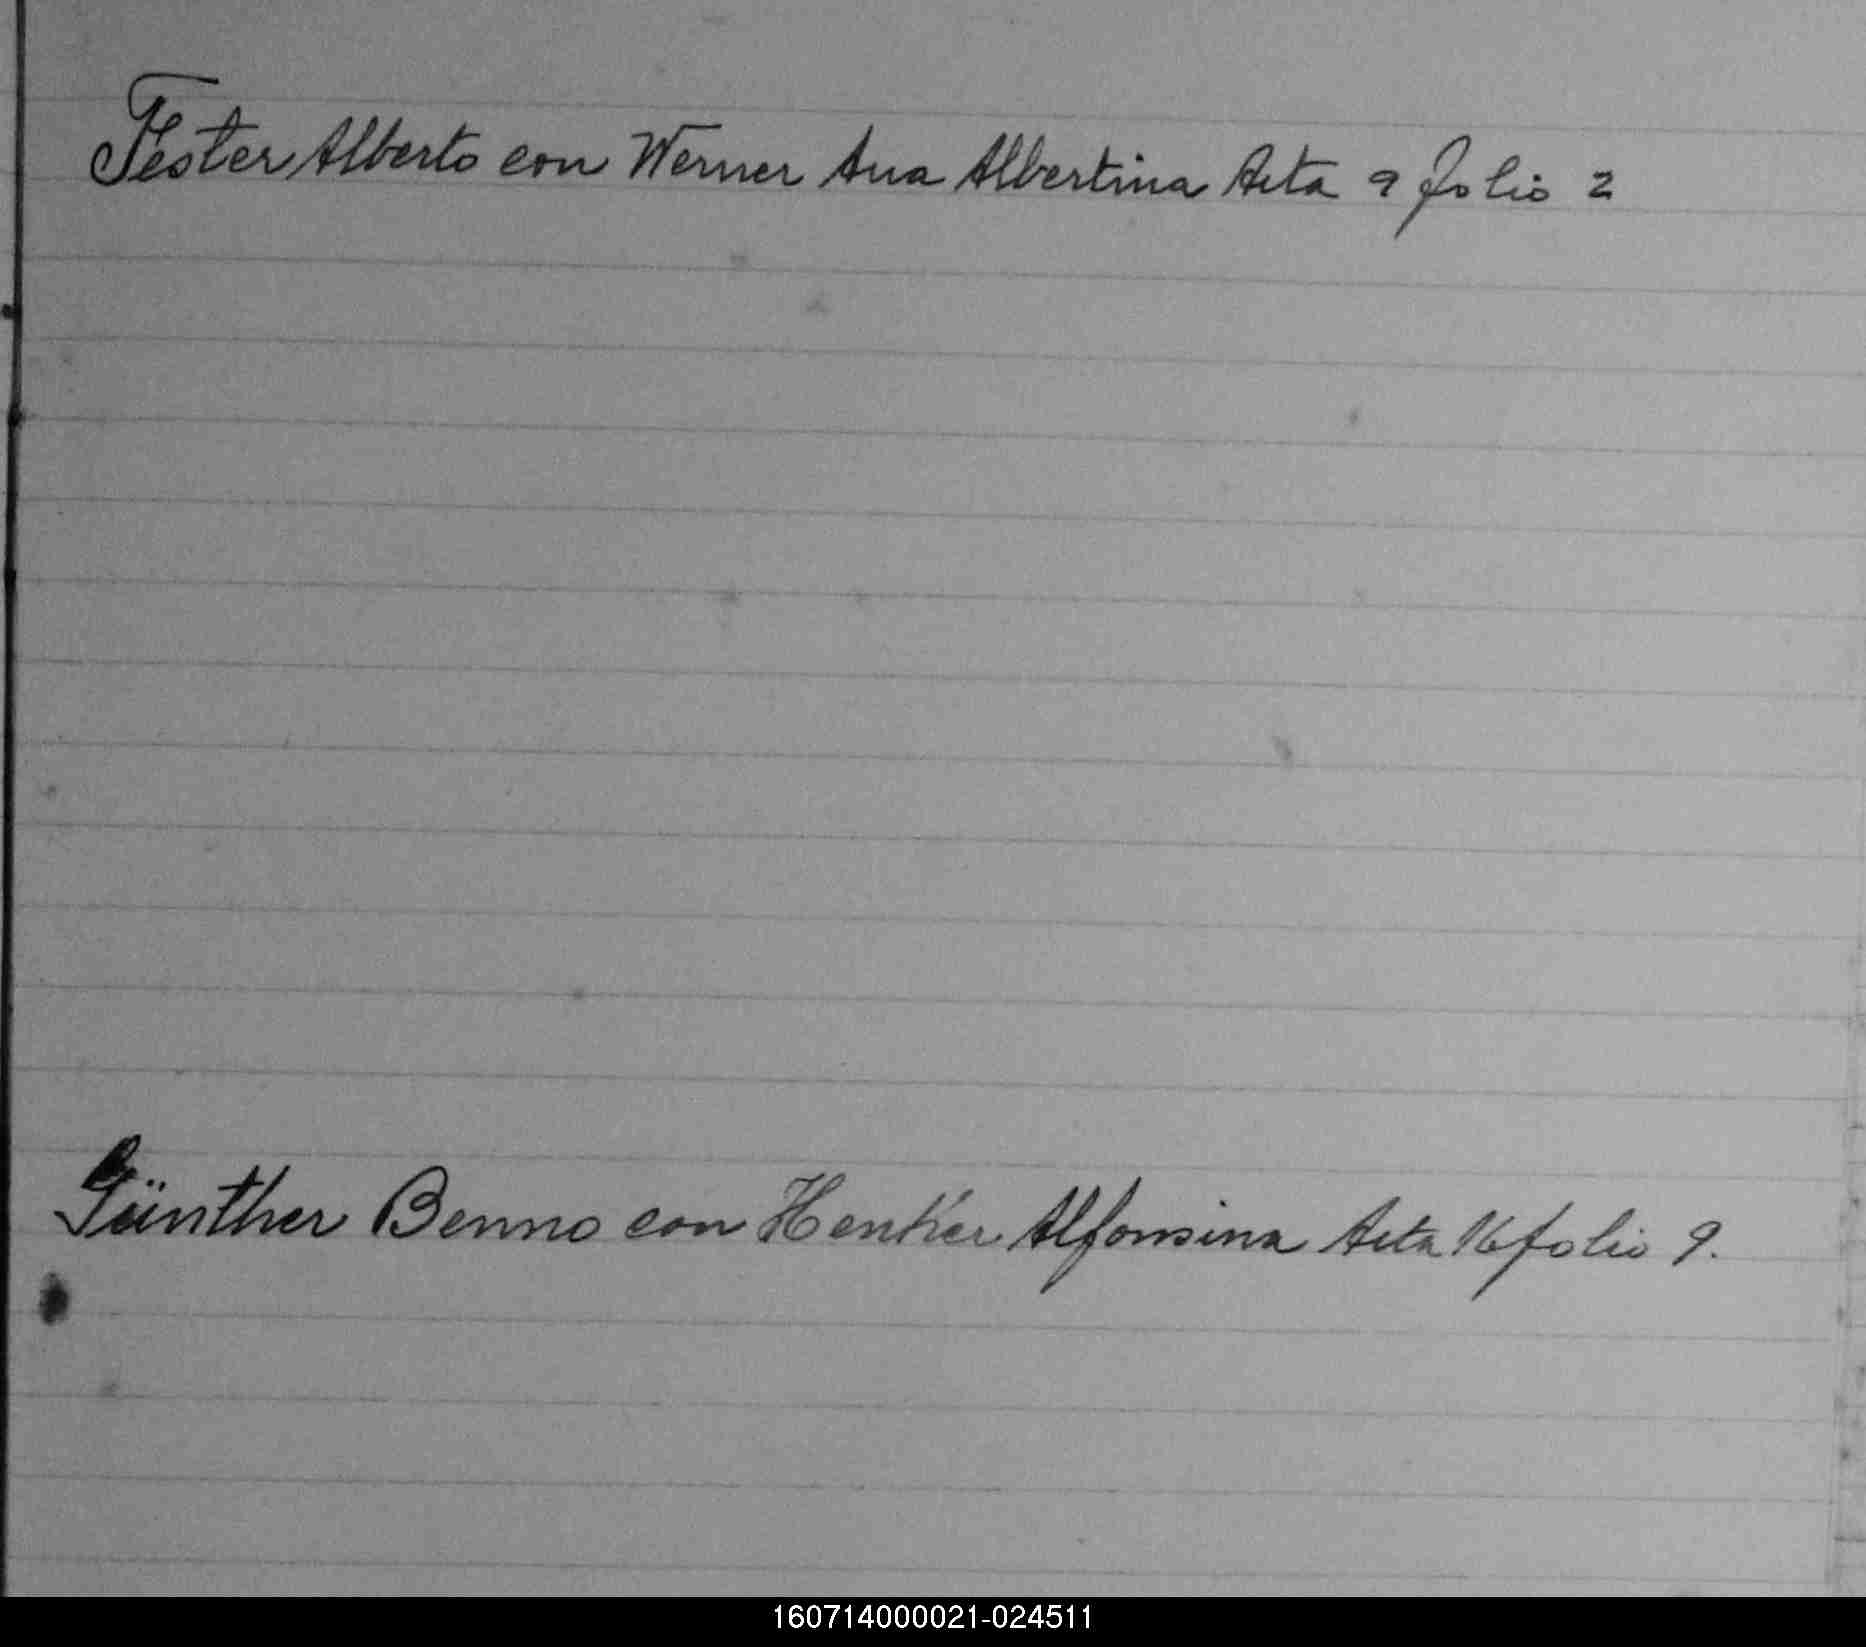 Fester Alberto con Werner Ana Albertina Acta 9 folio 2
Günther Benno con Henker Alfonsina Acta 16 folio 9.
160714000021-024511